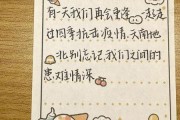 有一天我们再会重逢 一起走
过四季抗击疫情,天南地
北别忘记,我们之间的
患难情深